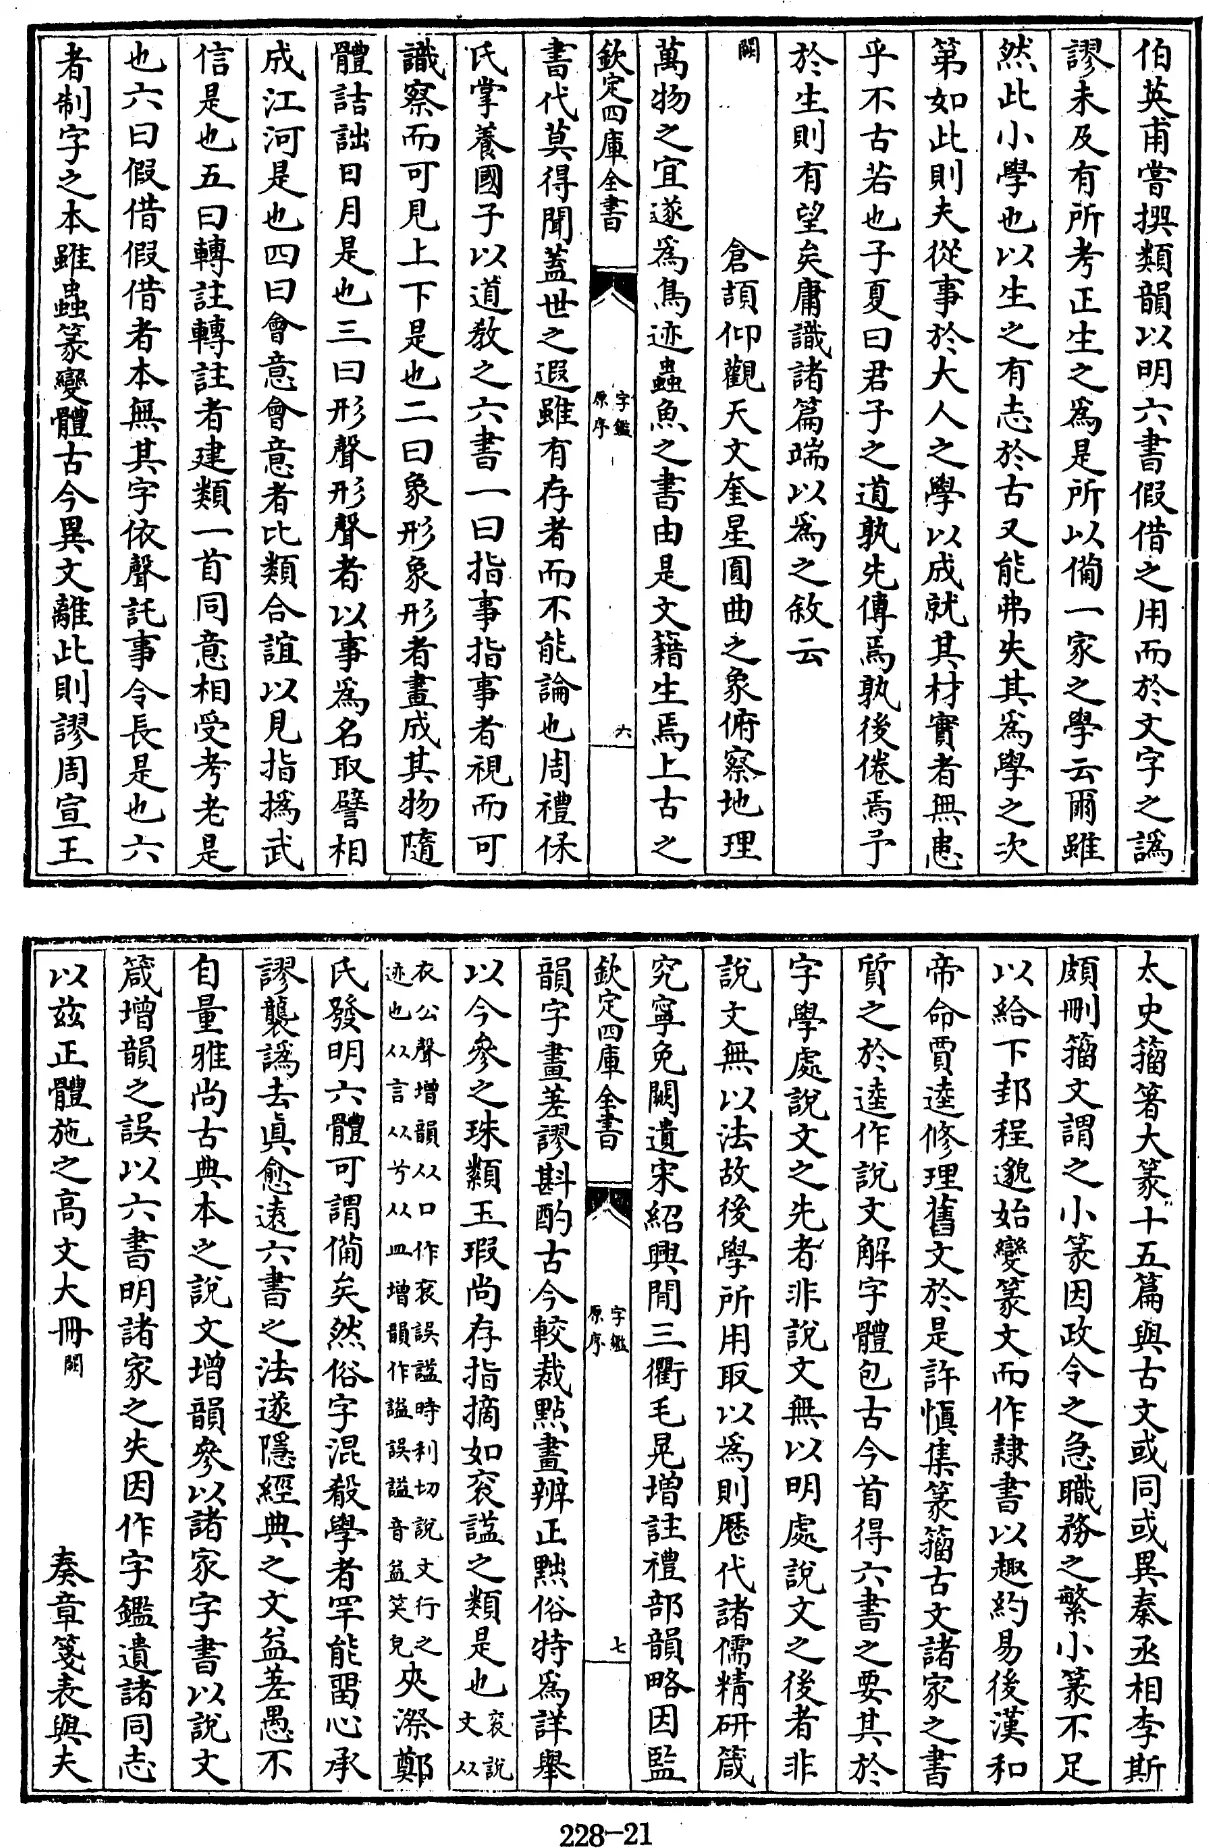 伯英甫嘗撰類韻以明六書假借之用而於文字之譌
謬未及有所考正生之爲是所以備一家之學云爾雖
然此小學也以生之有志於古又能弗失其爲學之次
第如此則夫從事於大人之學以成就其材實者無患
乎不古若也子夏曰君子之道孰先傳焉孰後倦焉予
於生則有望矣庸識諸篇端以爲之敘云
闕
倉頡仰觀天文奎星圓曲之象俯察地理
萬物之宜遂爲鳥迹蟲魚之書由是文籍生焉上古之
欽定四庫全書
字鑑
原序
六
書代莫得聞蓋世之遐雖有存者而不能論也周禮保
氏掌養國子以道教之六書一曰指事指事者視而可
識察而可見上下是也二曰象形象形者畫成其物隨
體詰詘日月是也三曰形聲形聲者以事爲名取譬相
成江河是也四曰會意會意者比類合誼以見指撝武
信是也五曰轉註轉註者建類一首同意相受考老是
也六曰假借假借者本無其字依聲託事令長是也六
者制字之本雖蟲篆變體古今異文離此則謬周宣王
太史籀著大篆十五篇與古文或同或異秦丞相李斯
頗刪籀文謂之小篆因政令之急職務之繁小篆不足
以給下邽程邈始變篆文而作隸書以趣約易後漢和
帝命賈逵修理舊文於是許愼集篆籀古文諸家之書
質之於逵作說文解字體包古今首得六書之要其於
字學處說文之先者非說文無以明處說文之後者非
說文無以法故後學所用取以爲則歷代諸儒精研箴
究寧免闕遺宋紹興間三衢毛晃增註禮部韻略因監
欽定四庫全書
字鑑
原序
七
韻字畫差謬斟酌古今較裁點畫辨正黙俗特爲詳舉
以今參之珠纇玉瑕尚存指摘如衮謚之類是也衮說文从
衣公聲增韻从口作衮誤謚時利切說文行之迹也从言从兮从皿增韻作謚誤謚音益笑皃夾漈鄭
氏發明六體可謂備矣然俗字混殽學者罕能畱心承
謬襲譌去眞愈遠六書之法遂隱經典之文益差愚不
自量雅尚古典本之說文增韻參以諸家字書以說文
箴增韻之誤以六書明諸家之失因作字鑑遺諸同志
以兹正體施之高文大冊闕奏章箋表與夫
228-21